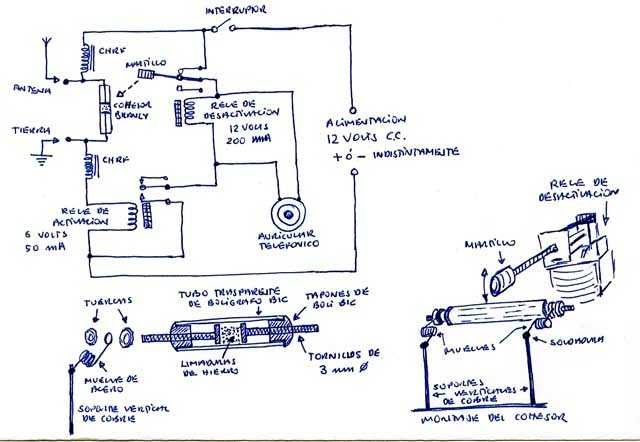 INTERRUPTOR
CHRF
MARTILLO
ANTENA
COHESOR
BRANLY
RELE DE
DESACTIVACION
12 VOLTS
200 MA
ALIMENTACION
12 VOLTS C.C.
+ ó - INDISTINTAMENTE
TIERRA
CHRF
RELE DE
ACTIVACION
6 VOLTS
50 MA
AURICULAR
TELEFONICO
RELE DE
DESACTIVACION
MARTILLO
TUERCAS
TUBO TRASPARENTE
DE BOLIGRAFO BIC
TAPONES DE
BOLI BIC
LIMADURAS
DE HIERRO
TORNILLOS DE
3 mm Ø
MUELLE DE
ACERO
SOPORTE VERTICAL
DE COBRE
MUELLES
SOLDADURA
SOPORTES
VERTICALES
DE COBRE
MONTAJE DEL COHESOR